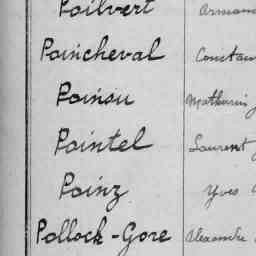 Poilvert Arman
Poincheval Constan
Poinsu Mathurin J
Pointel Laurent J
Poinz Yves
Pollock-Gore Alexandre